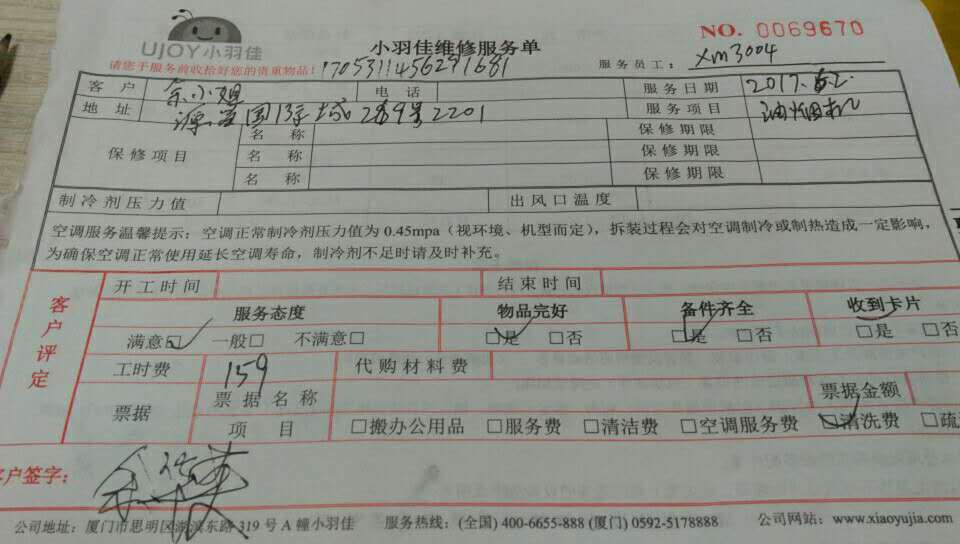 UJOY小羽佳
小羽佳维修服务单
NO. 0069670
请您于服务前收拾好您的贵重物品!
服务员工: Xm3004
客户 余小姐 电话 服务日期 2017.
地址 2201 服务项目 油烟机
保修项目 名称 保修期限
名称 保修期限
名称 保修期限
制冷剂压力值 出风口温度
空调服务温馨提示:空调正常制冷剂压力值为0.45mpa(视环境、机型而定),拆装过程会对空调制冷或制热造成一定影响,
为确保空调正常使用延长空调寿命,制冷剂不足时请及时补充。
客户评定
开工时间 结束时间
服务态度 物品完好 备件齐全 收到卡片
满意☑ 一般□ 不满意□ ☑是 □否 ☑是 □否 □是 □否
工时费 159 代购材料费
票据 票据名称 票据金额
项目 □搬办公用品 □服务费 □清洁费 □空调服务费 ☑清洗费 □疏
客户签字:
公司地址:厦门市思明区湖滨东路319号A幢小羽佳 服务热线:(全国)400-6655-888 (厦门)0592-5178888 公司网站:www.xiaoyujia.com